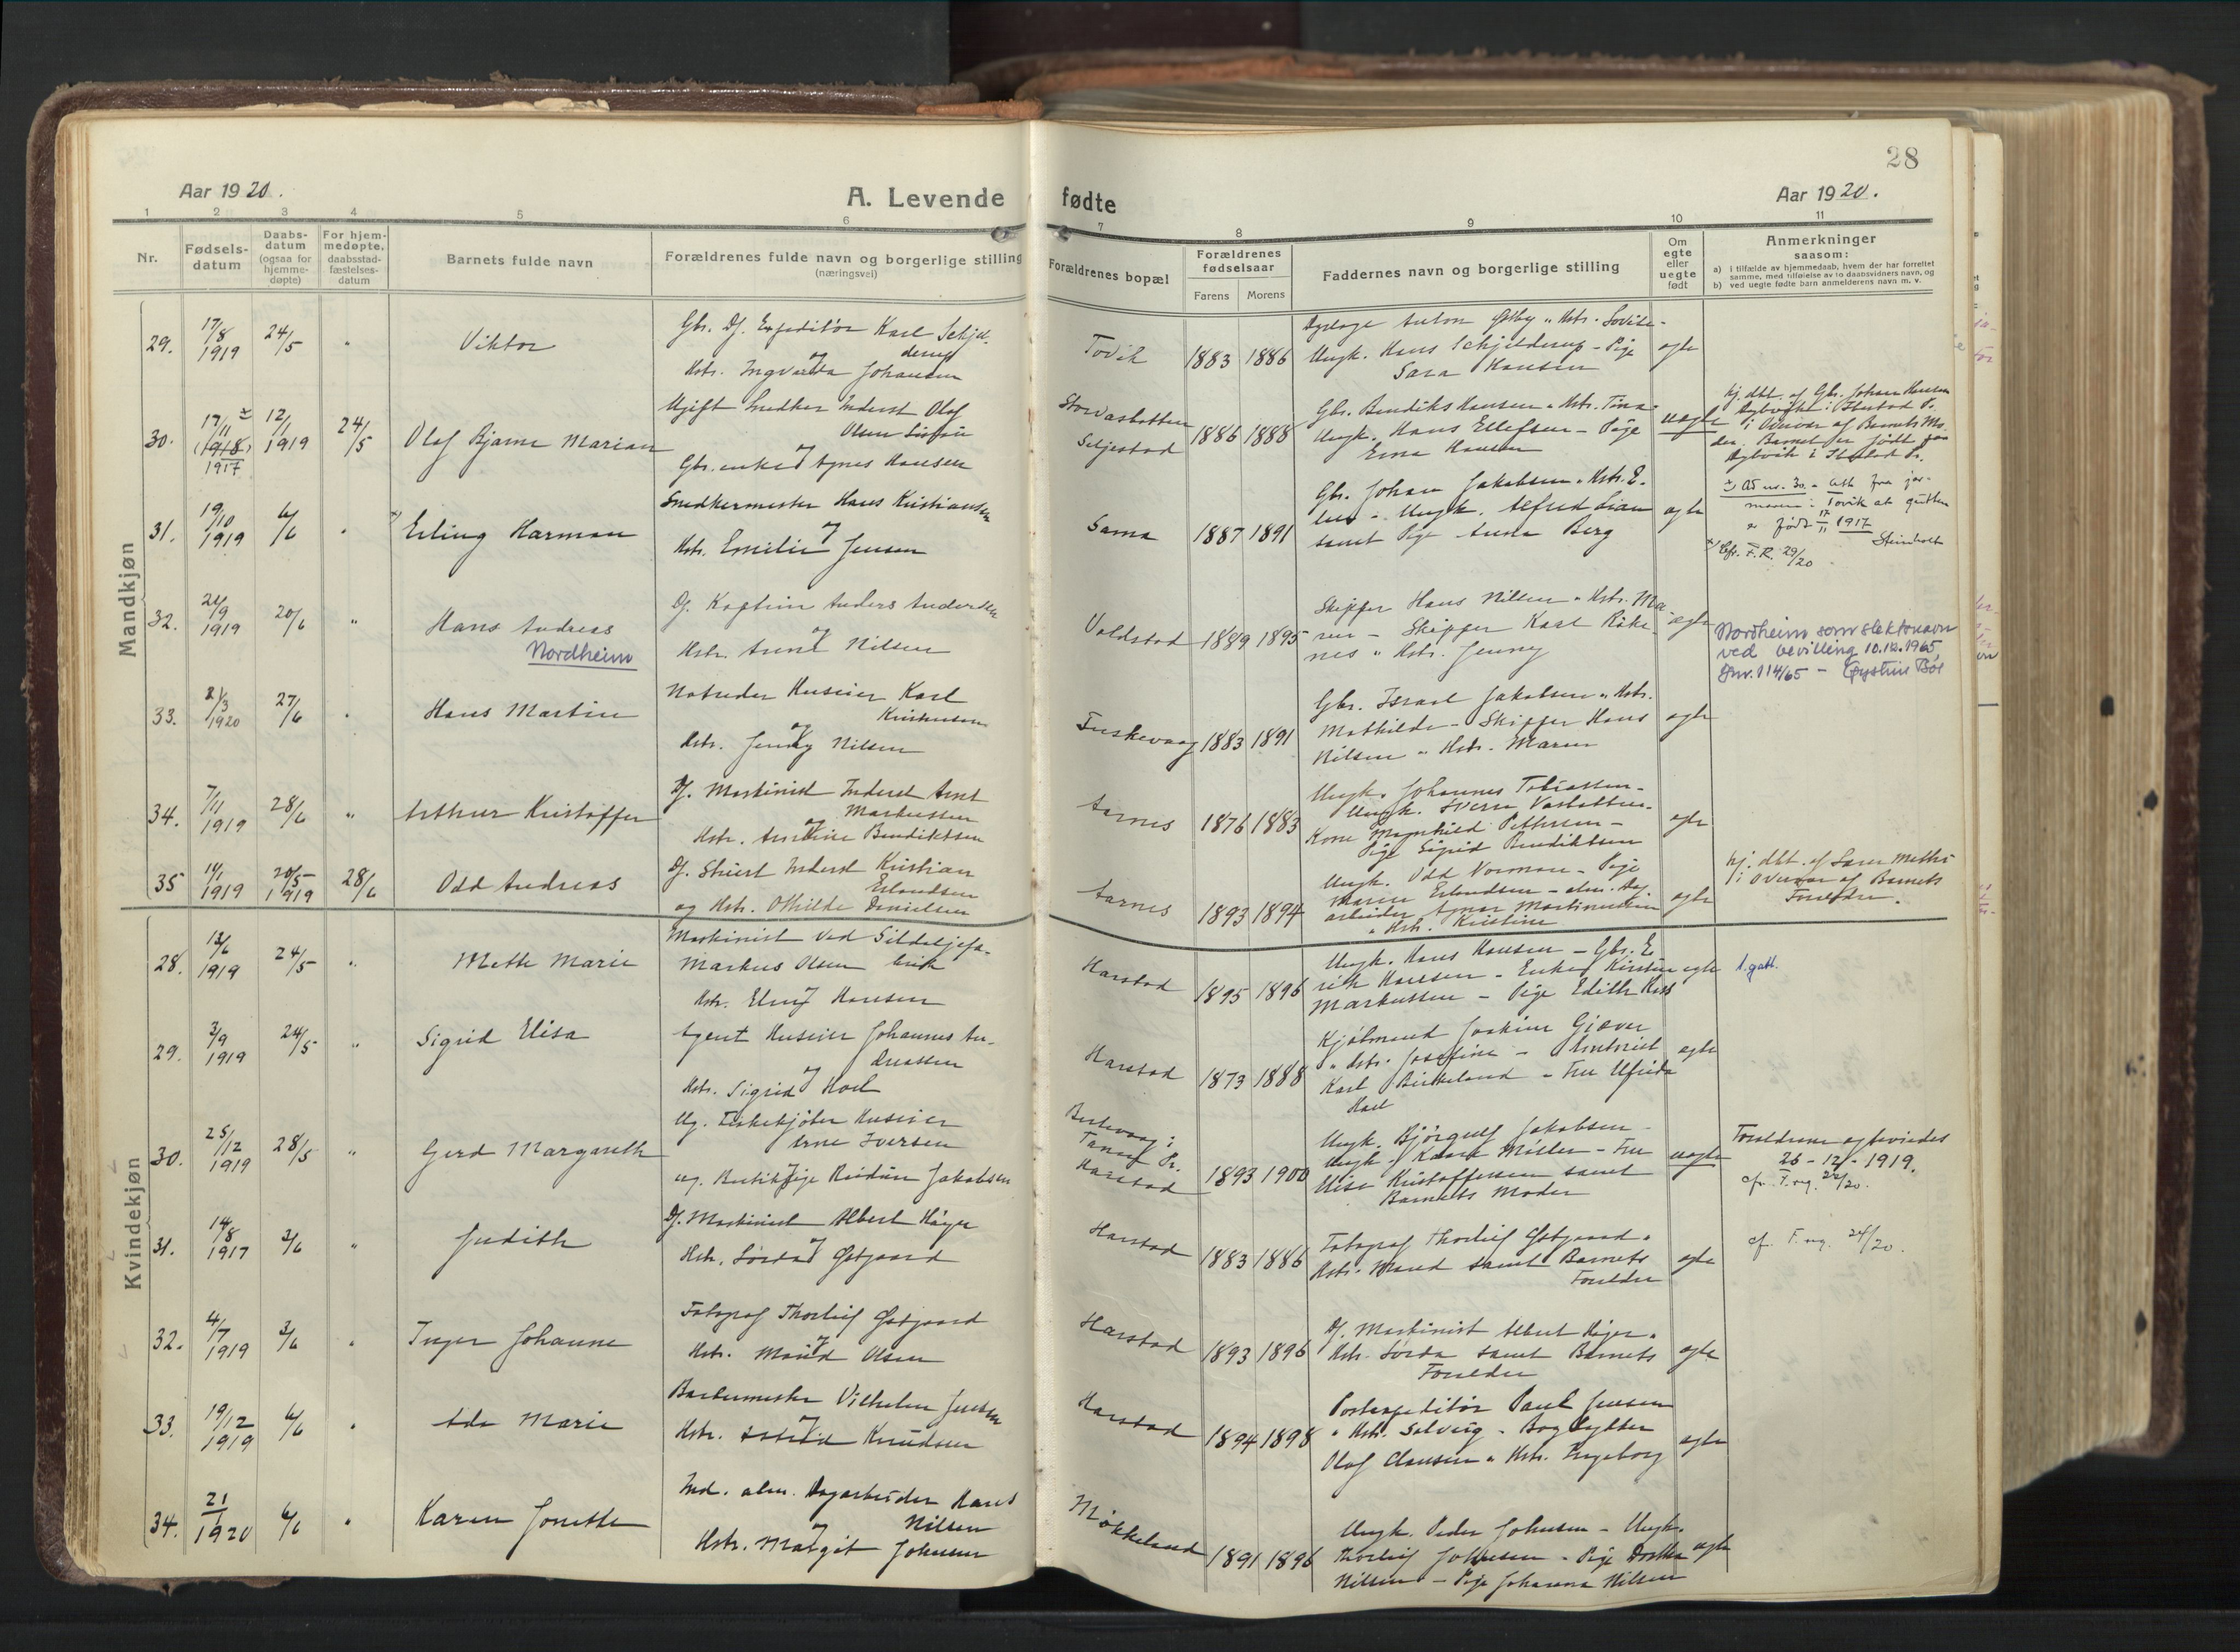 28
Aar 1920.
A. Levende
fødte
Aar 1920.
1 2 3 4 5 6 7 8 9 10 11
Nr.
Fødsels-
datum
Daabs-
datum
(ogsaa for
hjemme-
døpte)
For hjem-
medøpte,
daabsstad-
fæstelses-
datum
Barnets fulde navn
Forældrenes fulde navn og borgerlige stilling
(næringsvei)
Forældrenes bopæl
Forældrenes
fødselsaar
Farens Morens
Faddernes navn og borgerlige stilling
Om
egte
eller
uegte
født
Anmerkninger
saasom:
a) i tilfælde av hjemmedaab, hvem der har forrettet
samme, med tilføielse av to daabsvidners navn, og
b) ved uegte fødte barn anmelderens navn m. v.
Mandkjøn
29. 17/8 1919 24/5 " Viktor
Gbr. Df. Expeditør Karl Schjel-
derup
og
Hstr. Ingvarda Johansen
Tovik 1883 1886
Ungk. Hans Schjelderup - Pige
Sara Hansen
egte
30. 17/11 (1918) 1917 12/1 1919 24/5 Olaf Bjarne Marian
Ugift Snedker Inderst Olaf
Olsen
og
Gbr. enke Agnes Hansen
Storvasbotten
Seljestad
1886 1888
Gbr. Bendiks Hansen " Hstr. Tina -
Ungk. Hans Ellefsen - Pige
Erna Hansen
uegte
hj. dbt. af Gbr. Johan Hansen
i Overvær af Barnets Mo-
der. Barnet er født paa
31. 19/10 1919 6/6 " Erling Harman
Snedkermester Hans Kristiansen
og
Hstr. Emilie Jensen
Sama 1887 1891
Gbr. Johan Jakobsen " Hstr. E-
- Ungk. Alfred Lian
samt Pige Anna Berg
egte
x) Ad nr. 30 - Att. fra jor-
moren i Tovik at gutten
er født 17/11 1917
Steinholt
x) Cfr. F.R. 29/20
32. 24/9 1919 20/6 " Hans Andreas
Nordheim
Df. Kaptein Anders Andersen
og
Hstr. Anna Nilsen
Voldstad 1889 1895
Skipper Hans Nilsen " Hstr. Ma-
ren - Skipper Karl Røke-
nes " Hstr. Jenny
egte
Nordheim som slektsnavn
ved bevilling 10.12.1965
Jnr. 114/65 - Øystein Bøe
33. 21/3 1920 27/6 " Hans Martin
Notreder Huseier Karl
Kristensen
og
Hstr. Jenny Nilsen
Fuskevaag 1883 1891
Gbr. Israel Jakobsen " Hstr.
Mathilde - Skipper Hans
Nilsen " Hstr. Maren
egte
34. 7/11 1919 28/6 " Arthur Kristoffer
Df. Maskinist Inderst Arnt
Markussen
og
Hstr. Bendiktsen
Aarnes 1876 1883
Ungk. Johannes Tobiassen -
Ungk. Sverre
Kone Magnhild Pettersen -
Pige Sigrid Bendiktsen
egte
35 11/1 1919 20/5 1919 28/6 Odd Andreas
Df. Stuert Inderst Kristian
Erlandsen
og Hstr. Othilde Danielsen
Aarnes 1893 1894
Ungk. Odd Norman - Pige
Maren Erlandsen - alm. Dag-
arbeider Agnar Martinussen
" Hstr. Kristine
egte
hj. dbt. af
i Overvær af Barnets
Foreldre.
Kvindekjøn
28. 13/6 1919 24/5 " Mette Marie
Maskinist ved Sildoljefa-
brik
Markus Olsen
og
Hstr. Elna Hansen
Harstad 1895 1896
Ungk. Hans Hansen - Gbr. E-
rik Hansen - Enke Kirstine
Markussen - Pige Edith
egte
1. gatt.
29. 3/9 1919 24/5 " Sigrid Elisa
Agent Huseier Johannes An-
dreassen
og
Hstr. Sigrid Hoel
Harstad 1873 1888
Kjøbmand Joakim Giæver
" Hstr. Josefine -
Karl Birkeland - Fru Alfrida
Hoel
egte
30. 25/12 1919 28/5 " Gerd Margareth
Ug. Fiskekjøber Huseier
Arne Iversen
og
ug. Butikpige Reidun Jakobsen
Tanen Pr.
Harstad
1893 1900
Ungk. Bjørgulf Jakobsen -
Ungk. Kaare Müller - Fru
Elise Kristoffersen samt
Barnets Moder
uegte
Foreldrene egteviedes
26 - 12 - 1919.
cfr. F. reg. 22/20.
31. 14/8 1917 3/6 " Judith
Df. Maskinist Albert Høyer
og
Hstr. Lorda Østgaard
Harstad 1883 1886
Fotograf Thorleif Østgaard "
Hstr. Maud samt Barnets
Foreldre
egte
cf. F. reg. 24/20.
32. 4/7 1919 3/6 " Inger Johanne
Fotograf Thorleif Østgaard
og
Hstr. Maud Olsen
Harstad 1893 1896
Df. Maskinist Albert Høyer "
Hstr. Lorda samt Barnets
Foreldre
egte
33. 19/12 1919 6/6 " Ada Marie
Barbermester Vilhelm Jensen
og
Hstr. Astrid Knudsen
Harstad 1894 1898
Postexpeditør Paul Jensen
" Hstr. Solveig - Bogtrykker
Olaf Clausen " Hstr. Ingeborg
egte
34. 21/1 1920 6/6 " Karen Jonette
Ind. alm. Dagarbeider Hans
Nilsen
og
Hstr. Margit Johnsen
Møkkeland 1891 1896
Ungk. Peder Johnsen - Ungk.
Thorleif Johnsen - Pige Dorthea
Nilsen - Pige Johanna Nilsen
egte